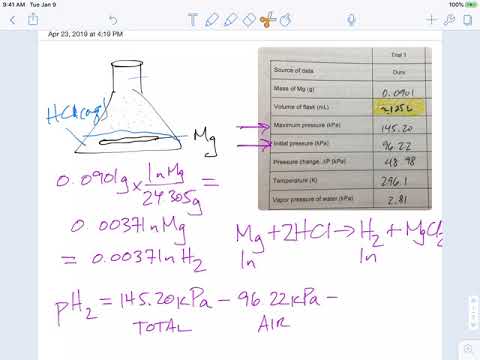 9:41 AM Tue Jan 9
100%
Apr 23, 2019 at 4:19 PM
HCl(aq)
Mg
Trial 1
Source of data Ours
Mass of Mg (g) 0.0901
Volume of flask (mL)
Maximum pressure (kPa) 145.20
Initial pressure (kPa) 96.22
Pressure change, ΔP (kPa) 48.98
Temperature (K) 296.1
Vapor pressure of water (kPa) 2.81
0.0901g × 1nMg =
24.305g
0.00371nMg
= 0.00371nH2
Mg + 2HCl → H2 + MgCl2
1n 1n
pH2 = 145.20kPa - 96.22kPa -
TOTAL AIR